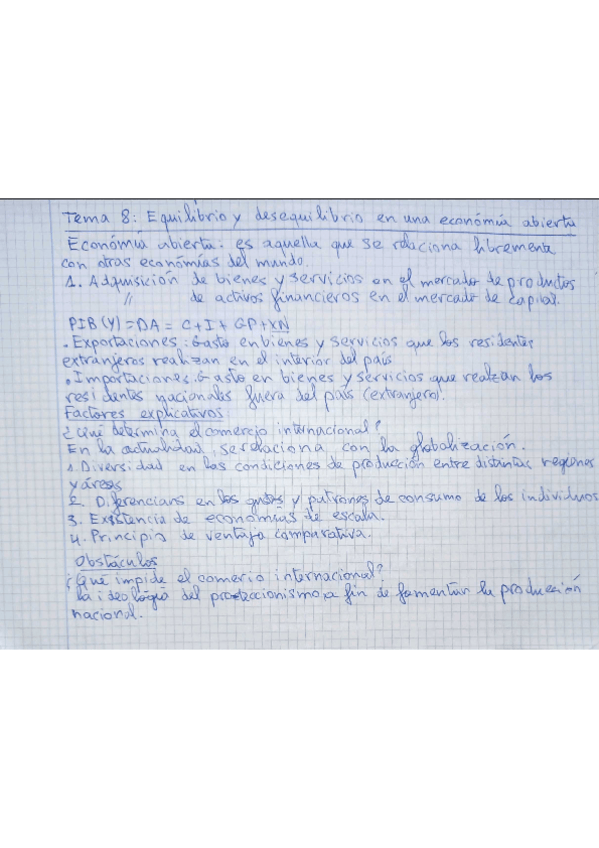 Tema 8: Equilibrio y desequilibrio en una económia abierta
Económia abierta: es aquella que se relaciona libremente
con otras económias del mundo.
1. Adquisición de bienes y servicios en el mercado de productos
// de activos financieros en el mercado de capital.
PIB (Y) = DA = C + I + GP + XN
• Exportaciones: Gasto en bienes y servicios que los residentes
extranjeros realizan en el interior del país
• Importaciones: Gasto en bienes y servicios que realzan los
residentes nacionales fuera del país (extranjero).
Factores explicativos:
¿Qué determina el comercio internacional?
En la actualidad, se relaciona con la globalización.
1. Diversidad en las condiciones de producción entre distintas regiones
y áreas
2. Diferencians en los gustos y patrones de consumo de los individuos
3. Existencia de economias de escala.
4. Principio de ventaja comparativa.
Obstáculos
¿Qué impide el comerio internacional?
La ideologia del proteccionismo, a fin de fomentar la producción
nacional.